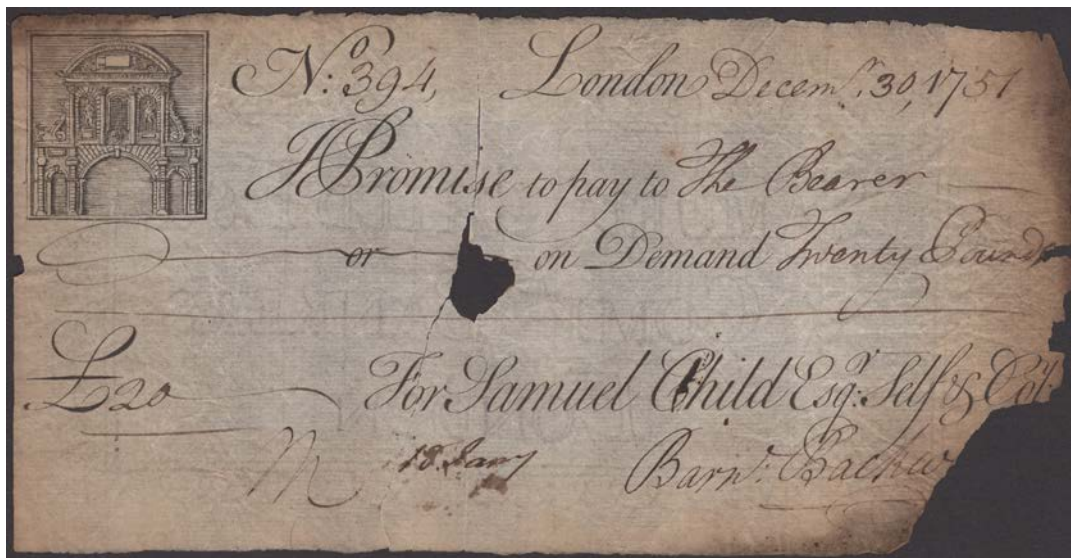 No: 394, London Decemr. 30, 1751
I Promise to pay to The Bearer
or on Demand Twenty Pounds
£20 For Samuel Child Esqr: Self & Co:
18 Jany Barnd: Backw